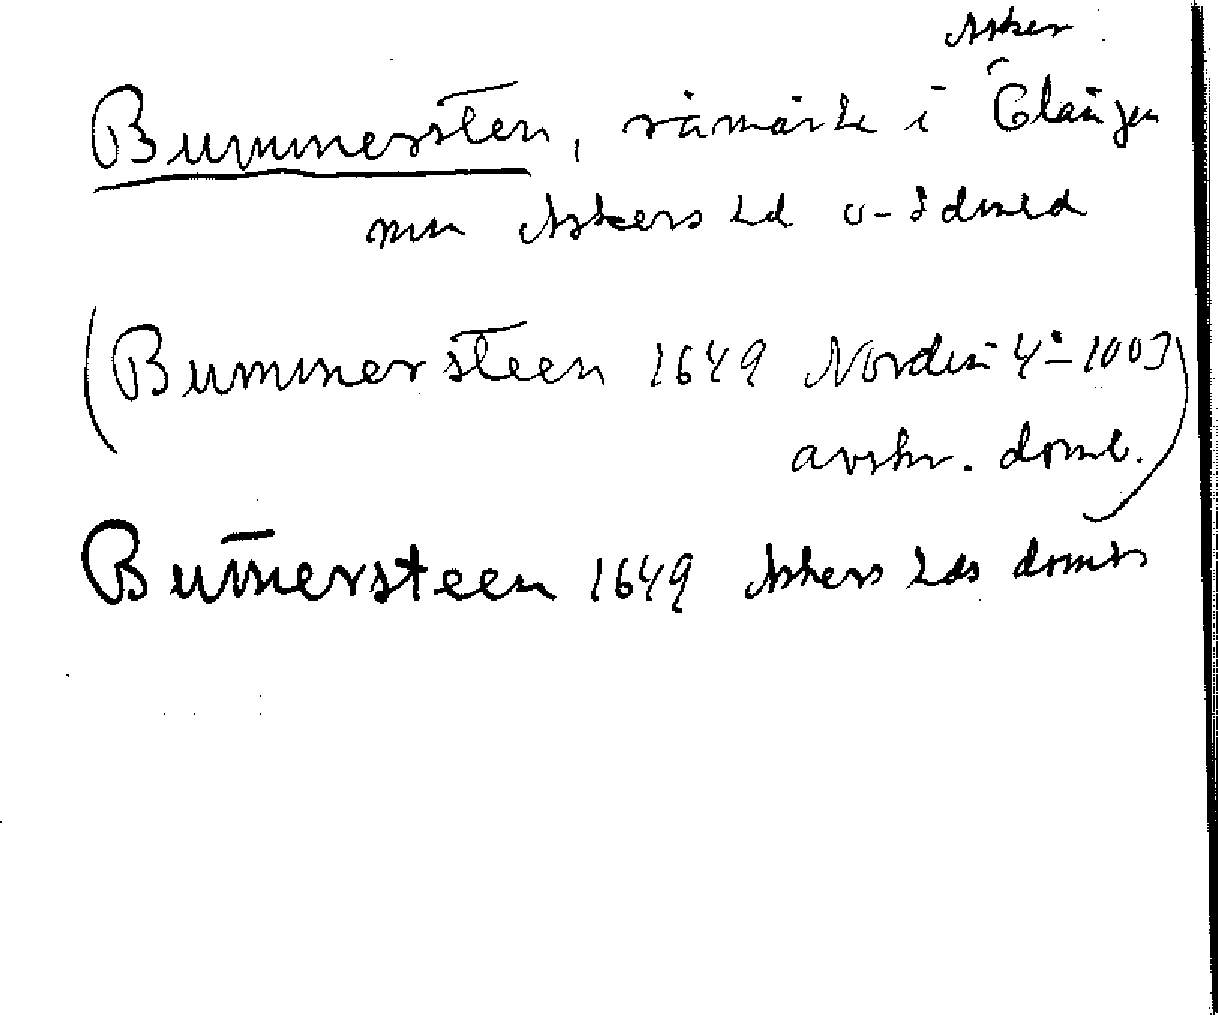 Asker
Bummersten, råmärke i
man Askers hd o-Ödmed
(Bummersteen 1649 Nordin 4º 1003
avskr. domb.)
Bum̄ersteen 1649 Askers hds domb